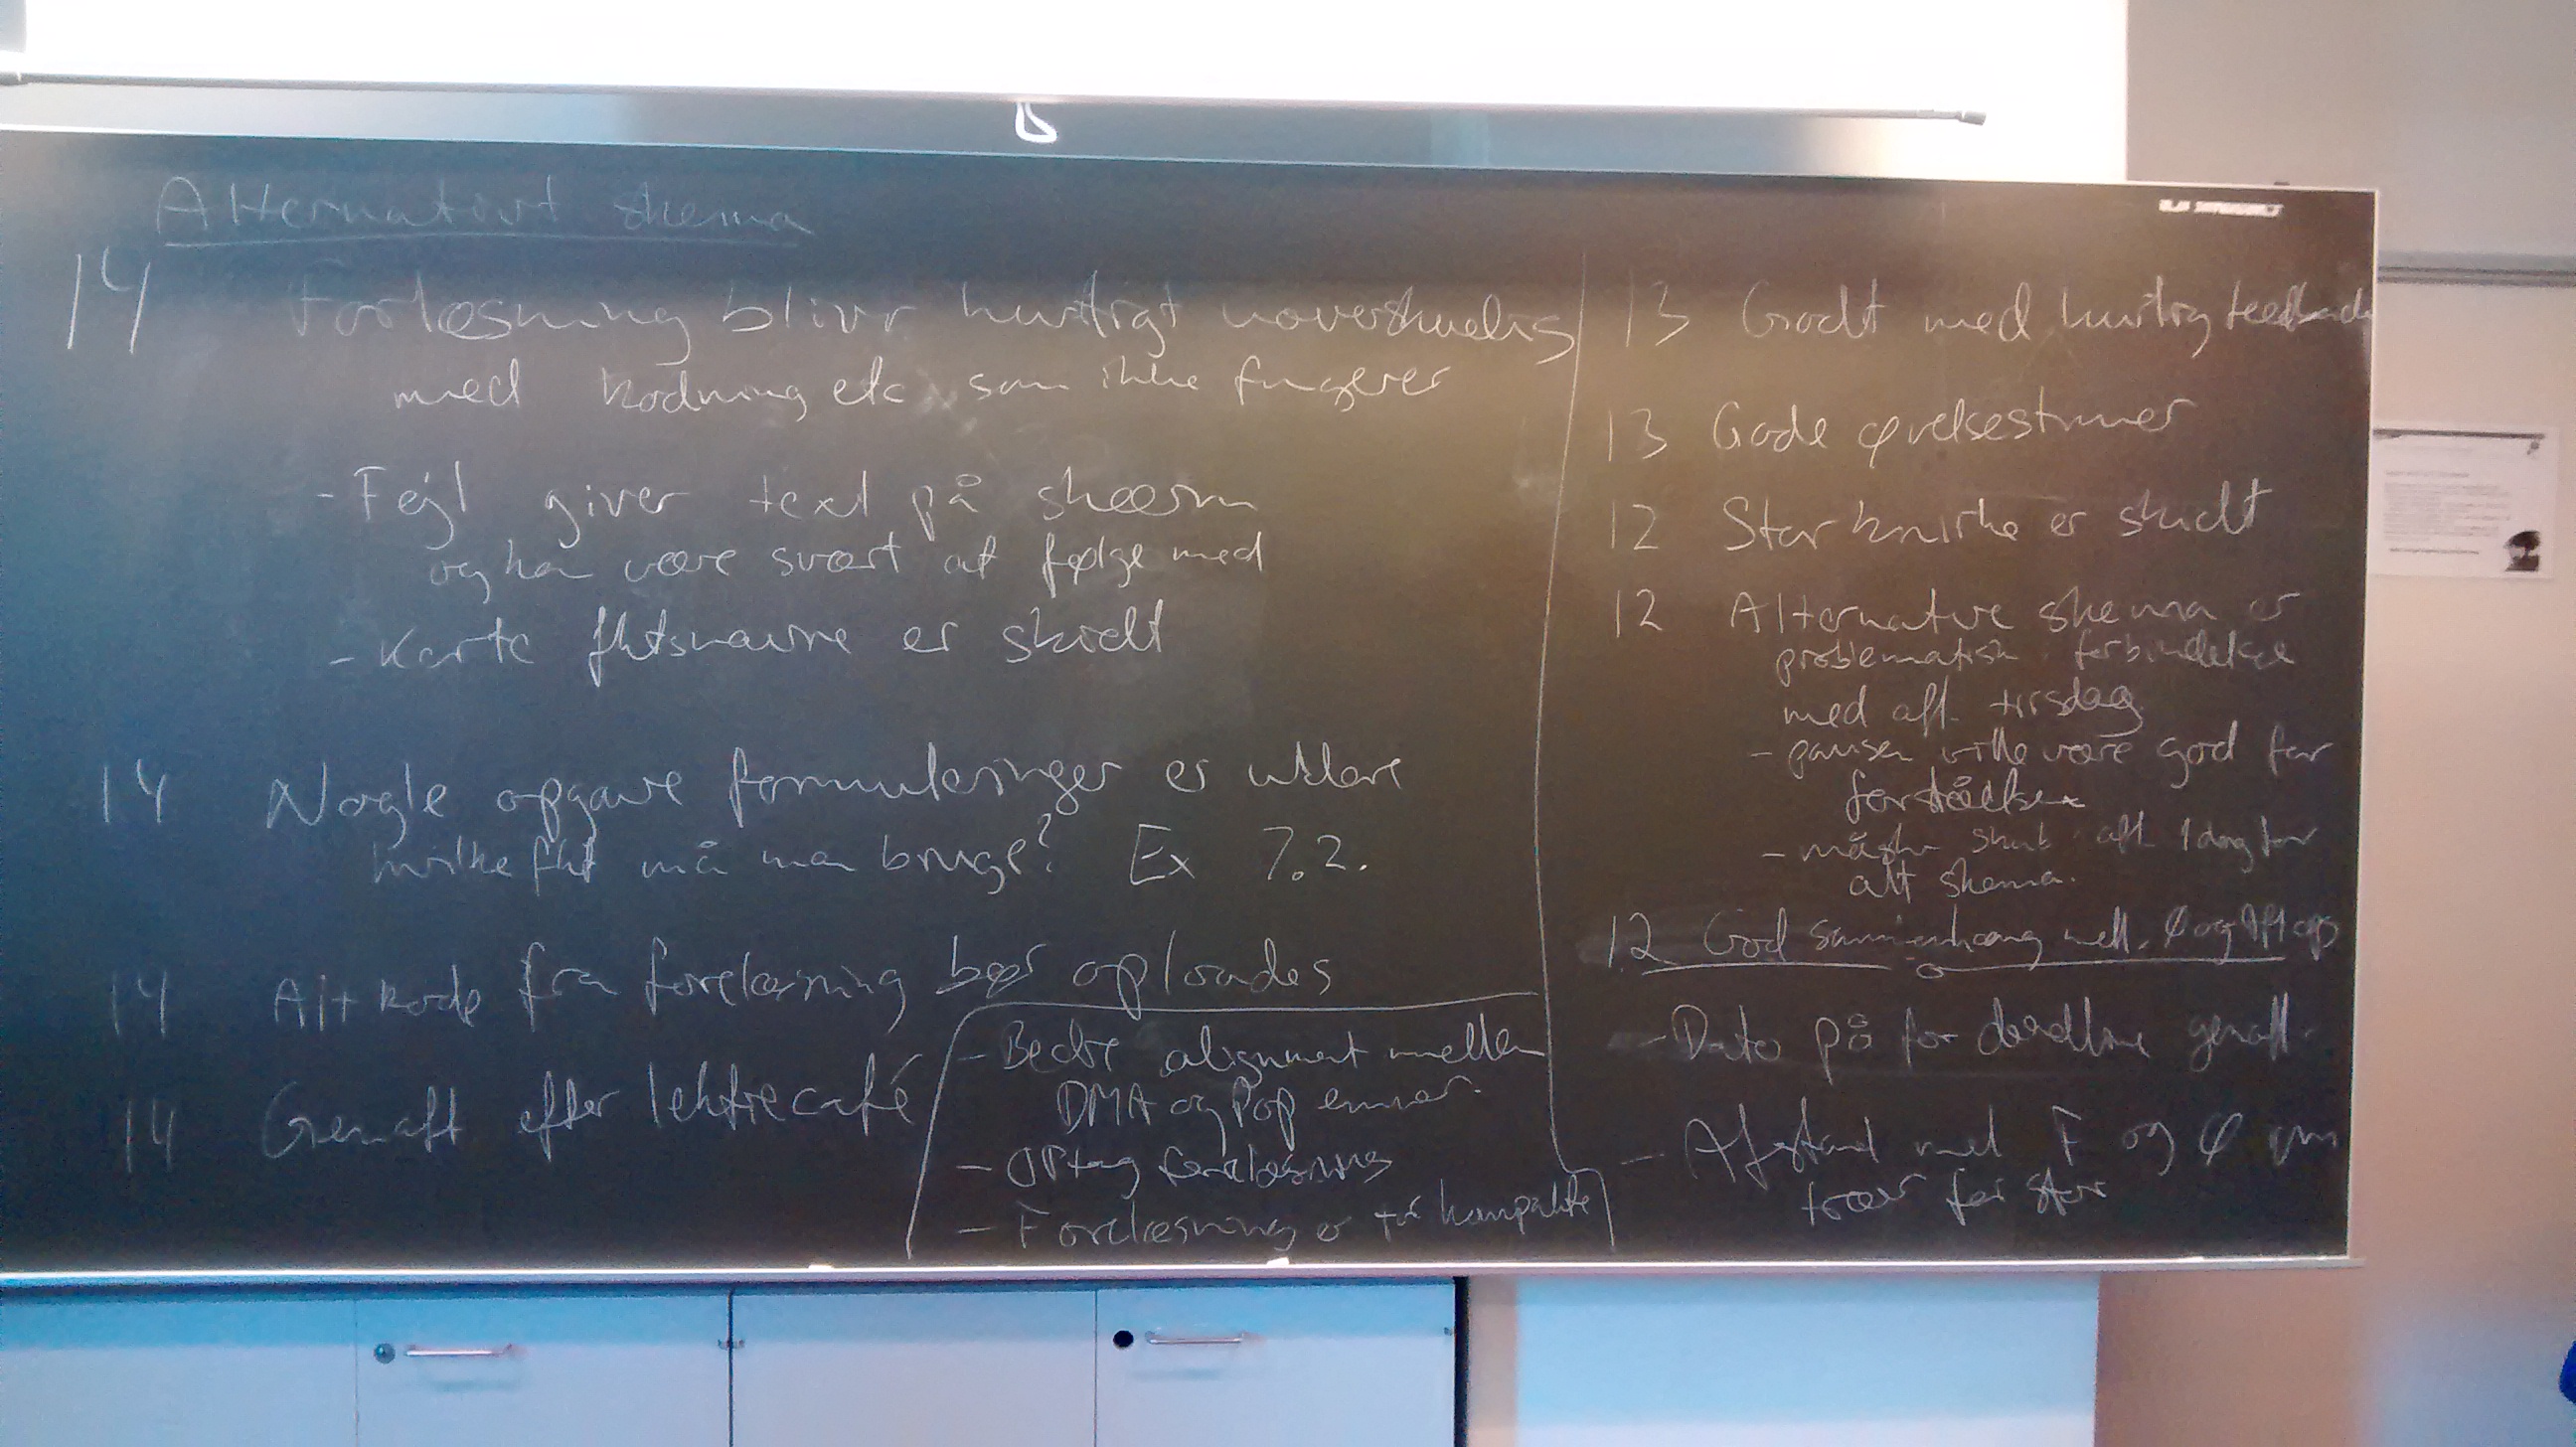 Alternativt skema
14 Forlæsning blivr hurtigt uoverskuelig
med kodning etc som ikke fungerer
- Fejl giver text på skærm
og kan være svært at følge med
- Korte fktsnavne er skidt
14 Nogle opgave formuleringer er uklare
hvilke fkt må man bruge? Ex 7.2.
14 Alt kode fra forelæsning bør oploades
14 Genaft efter lektiecafé
- Bedre alignment mellem
DMA og Pop emner.
- Optag forelæsning
- Forelæsning er for kompakte
13 Godt med hurtig feedback
13 Gode øvelsestimer
12 Stor knirke er skidt
12 Alternative skema er
problematisk i forbindelse
med afl. tirsdag.
- pausen ville være god for
forståelsen
- måske skub afl. 1 dag for
alt skema.
12 God sammenhæng mell. Ø og Afl op
- Dato på for deadline genafl.
- Afstand mel F og Ø om
træer for stor